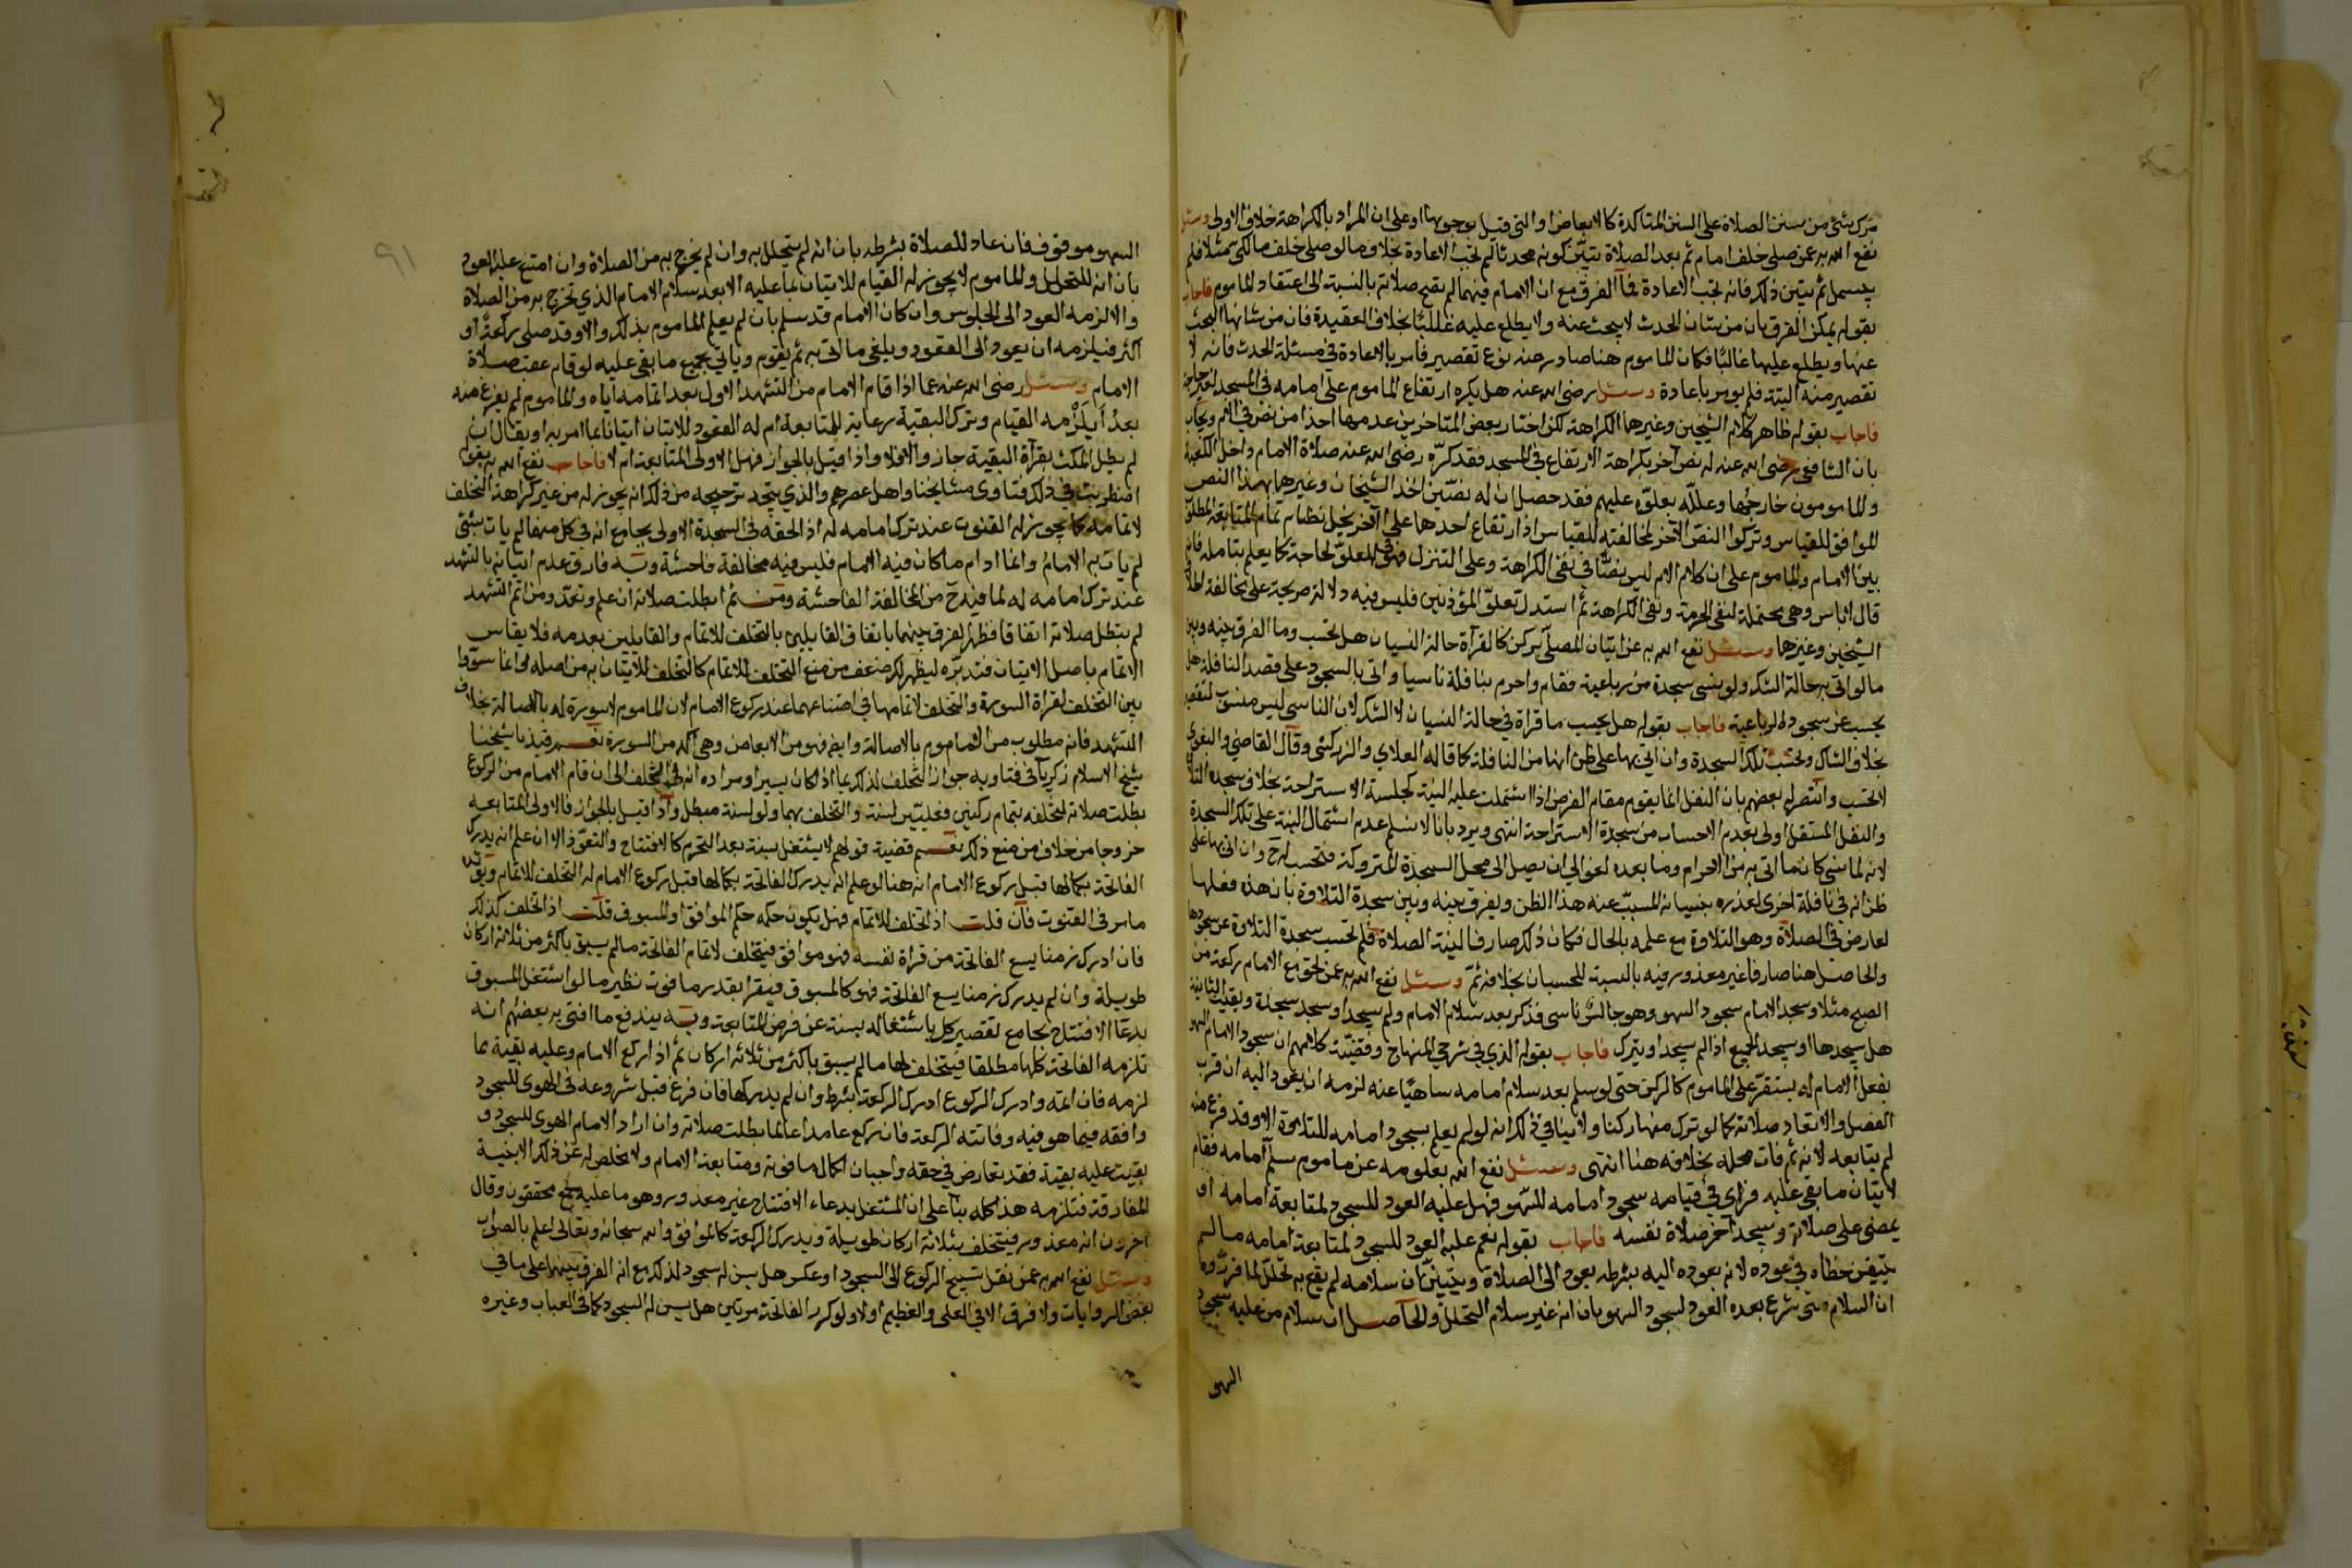 ترك شئ من سنن الصلاة على السنن المتاكدة كالابعاض او التى قيل بوجوبها او على ان المراد بالكراهة خلاف الاولى وسئل
نفع الله به عمن صلى خلف امام ثم بعد الصلاة تبين كونه محدثا لم تجب الاعادة بخلاف ما لو صلى خلف مالكى مثلا فلم
يبسمل ثم تبين ذلك فانه تجب الاعادة فما الفرق مع ان الامام فيهما لم تصح صلاته بالنسبة الى اعتقاد الماموم فاجاب
بقوله يمكن الفرق بان من شان الحدث لا يبحث عنه ولا يطلع عليه غالبا بخلاف العقيدة فان من شانها البحث
عنها ويطلع عليها غالبا فكان الماموم هنا صادر منه نوع تقصير فامر بالاعادة في مسئلة الحدث فانه لا
تقصير منه البتة فلم يومر باعادة وسئل رضى الله عنه هل يكره ارتفاع الماموم على امامه في المسجد لغير حاجة
فاجاب بقوله ظاهر كلام الشيخين وغيرهما الكراهة لكن اختار بعض المتاخرين عدمها اخذا من نص في الام ويجاب
بان الشافعى رضى الله عنه له نص آخر بكراهة الارتفاع في المسجد فقد كره رضى الله عنه صلاة الامام داخل الكعبة
والمامومون خارجها وعلله بعلوه عليهم فقد حصل ان له نصين اخذ الشيخان وغيرهما بهذا النص
الموافق للقياس وتركوا النص الآخر لمخالفته للقياس اذ ارتفاع احدهما على الآخر يخل بنظام تمام المتابعة المطلوب
بين الامام والماموم على ان كلام الام ليس نصا في نفى الكراهة وعلى التنزل فهو في العلو لحاجة كما يعلم بتامله فانه
قال لا باس وهى محتملة لنفى الحرمة ونفى الكراهة ثم استدل بعلو المؤذنين فليس فيه دلالة صريحة على مخالفة
الشيخين وغيرهما وسئل نفع الله به عن اتيان المصلى بركن كالقرآة حالة النسيان هل تحسب وما الفرق بينه وبين
ما لو اتى به حالة الشك ولو نسى سجدة من رباعية فقام واحرم بنافلة ناسيا واتى بالسجود على قصد النافلة هل
يحسب عن سجود الرباعية فاجاب بقوله هل يحسب ما قراة في حالة النسيان لا الشك لان الناسى ليس منسوب لتقصير
بخلاف الشاك وتحسب تلك السجدة وان اتى بها على ظن انها من النافلة كما قاله العلاي والزركشى وقال القاضى والبغوى
لا تحسب وانتصر له بعضهم بان النفل انما يقوم مقام الفرض اذا اشتملت عليه النية كجلسة الاستراحة بخلاف سجدة التلاوة
والنفل المستقل اولى بعدم الاحساب من سجدة الاستراحة انتهى ويرد بانا لا نسلم عدم اشتمال النية على تلك السجدة
لانه لما نسى كان ما اتى به من الاحرام وما بعده لغوا الى ان يصل الى محل السجدة المتروكة فتحسب له ح وان اتى بها على
ظن انه في نافلة اخرى لعذره بنسيانه المسبب عنه هذا الظن ويفرق بينه وبين سجدة التلاوة بان هذه فعلها
لعارض في الصلاة وهو التلاوة مع علمه بالحال فكان ذلك صارفا لنية الصلاة فلم تحسب سجدة التلاوة عن سجودها
والحاصل هنا صارفا غير معذور فيه بالنسبة للحسبان بخلافه ثم وسئل نفع الله به عمن لحق مع الامام ركعة من
الصبح مثلا وسجد الامام سجود السهو وهو جالس ناسى فذكر بعد سلام الامام ولم يسجد او سجد سجدة وبقيت الثانية
هل يسجدها او يسجد الجميع اذا لم يسجد او يترك فاجاب بقوله الذي في شرحي المنهاج وقضية كلامهم ان سجود الامام السهو
بفعل الامام له يستقر على الماموم كالركن حتى لو سلم بعد سلام امامه ساهيا عنه لزمه ان يعود اليه ان قرب
الفصل والا تعاد صلاته كما لو ترك منها ركنا ولا ينافي ذلك انه لو لم يعلم بسجود امامه للتلاوة الا وقد فرغ منه
لم يتابعه لانه ثم فات محله بخلافه هنا انتهى وسئل نفع الله بعلومه عن ماموم سلم امامه فقام
لاتيان ما بقى عليه فراى في قيامه سجود امامه للسهو فهل عليه العود للسجود لمتابعة امامه او
يمضى على صلاته ويسجد آخر صلاة نفسه فاجاب بقوله نعم عليه العود للسجود لمتابعة امامه ما لم
يتيقن خطاه في عوده لانه بعوده اليه بشرطه يعود الى الصلاة ويتبين ان سلامه لم يقع به تحلل لما قرروه
ان السلام متى شرع بعده العود لسجود السهو بان انه غير سلام التحلل والحاصل ان سلام من عليه سجود
السهو
السهو موقوف فان عاد للصلاة بشرطه بان انه لم يتحلل به وان لم يخرج به من الصلاة وان امتنع عليه العود
بان انه للتحلل والماموم لا يجوز له القيام للاتيان بما عليه الا بعد سلام الامام الذي تخرج به من الصلاة
والا لزمه العود الى الجلوس وان كان الامام قد سلم بان لم يعلم الماموم بذلك والا وقد صلى ركعة او
اكثر فيلزمه ان يعود الى القعود ويلغى ما اتى به ثم يقوم وياتى بجميع ما بقى عليه لو قام عقب صلاة
الامام وسئل رضى الله عنه عما اذا قام الامام من التشهد الاول بعد اتمامه اياه والماموم لم يفرغ منه
بعد ايلزمه القيام وترك البقية رعاية للمتابعة ام له القعود للاتيان اتيانا بما امر به او يقال ان
لم يطل المكث بقرآة البقية جاز والا فلا واذا قيل بالجواز فهل الاولى المتابعة ام لا فاجاب نفع الله به بقوله
اضطربت في ذلك فتاوى مشايخنا واهل عصرهم والذي يتجه ترجيحه من ذلك انه يجوز له من غير كراهة التخلف
لاتمامه كما يجوز له القنوت عند ترك امامه له اذا لحقه في السجدة الاولى بجامع انه في كل منهما لم يات بشئ
لم يات به الامام وانما ادام ما كان فيه الامام فليس فيه مخالفة فاحشة وبه فارق عدم اتيانه بالتشهد
عند ترك امامه له لما فيه ح من المخالفة الفاحشة ومن ثم ابطلت صلاته ان علم وتعمد ومن اتم التشهد
لم تبطل صلاته اتفاقا فظهر الفرق بينهما باتفاق القايلين بالتخلف للاتمام والقايلين بعدمه فلا يقاس
الاتمام باصل الاتيان فتدبره ليظهر لك ضعف من منع التخلف للاتمام كالتخلف للاتيان به من اصله وانما سووا
بين التخلف لقراة السورة والتخلف لاتمامها في امتناعهما عند ركوع الامام لان الماموم لا سورة له بالاصالة بخلاف
التشهد فانه مطلوب من الماموم بالاصالة وايضا فهو من الابعاض وهى آكد من السورة نعم قيد شيخنا
شيخ الاسلام زكريا في فتاويه جواز التخلف لذلك بما اذا كان يسيرا ومراده انه في التخلف الى ان قام الامام من الركوع
بطلت صلاته لتخلفه بتمام ركنين فعليين لسنة والتخلف بهما ولو لسنة مبطل واذا قيل بالجواز فالاولى المتابعة
خروجا من خلاف من منع ذلك نعم قضية قولهم لا يشتغل بسنة بعد التحرم كالافتتاح والتعوذ الا ان علم انه يدرك
الفاتحة بكمالها قبل ركوع الامام انه هنا لو علم انه يدرك الفاتحة بكمالها قبل ركوع الامام له التخلف للاتمام
مامر في القنوت فان قلت اذا تخلف للاتمام فهل يكون حكمه حكم الموافق او المسبوق قلت اذا تخلف كذلك
فان ادرك زمنا يسع الفاتحة من قراة نفسه فهو موافق فيتخلف لاتمام الفاتحة مالم يسبق باكثر من ثلاثة اركان
طويلة وان لم يدرك زمنا يسع الفاتحة فهو كالمسبوق فيقرا بقدر ما فوت نظير ما لو اشتغل المسبوق
بدعا الافتتاح بجامع تقصير كل باشتغاله بسنة عن فرض المتابعة وبه يندفع ما افتى به بعضهم انه
تلزمه الفاتحة كلها مطلقا فيتخلف لها مالم يسبق باكثر من ثلاثة اركان ثم اذا ركع الامام وعليه بقية مما
لزمه فان اتمه وادرك الركوع ادرك الركعة بشرطه وان لم يدركها فان فرغ قبل شروعه في الهوى للسجود
وافقه فيما هو فيه وفاتته الركعة فان ركع عامدا عالما بطلت صلاته وان اراد الامام الهوى للسجود و
بقيت عليه بقية فقد تعارض في حقه واجبان اكمال ما فوته ومتابعة الامام ولا مخلص له عن ذلك الا بنية
المفارقة فتلزمه هذا كله بنا على ان المشتغل بدعاء الافتتاح غير معذور وهو ما عليه جمع محققون وقال
اخرون انه معذور فيتخلف بثلاثة اركان طويلة ويدرك الركعة كالموافق والله سبحانه وتعالى اعلم بالصواب
وسئل نفع الله به عمن نقل تسبيح الركوع الى السجود او عكس هل يسن له سجود لذلك مع ان الفرق بينهما على ما في
بعض الروايات ولا فرق الا في العلى والعظيم او لا ولو كرر الفاتحة مرتين هل يسن له السجود كما في العباب وغيره
٩١